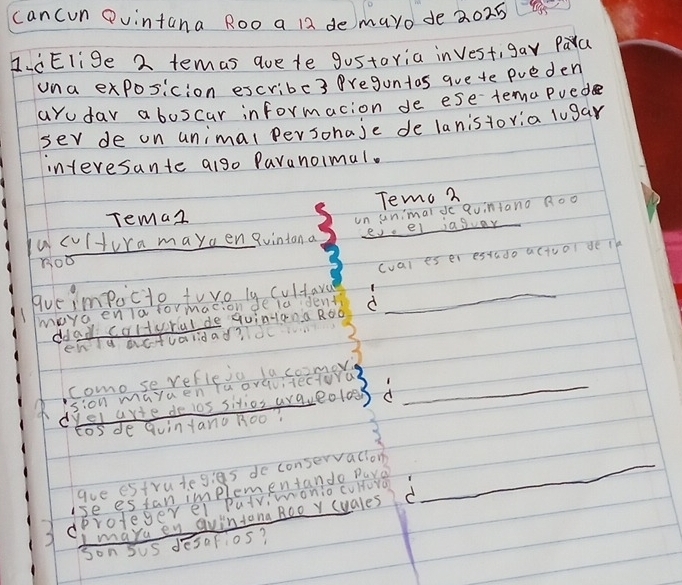 Cancun Quintana Roo a 12 de mayo de 2025
1.¿Elige 2 temas que te gustaria investigar Para
una exposicion escribe 3 Preguntas que te pueden
ayudar a buscar informacion de ese tema puede
ser de un animal personaje de la nistoria lugar
interesante algo Paranolmal.
Tema 1
la cultura maya en Quintana
Roo
1 que impacto tuvo la cultura
maya en la formacion de la identi
dad cultural de Quintana Roo
en la actualidad?
2 como se refleja la cosmov
ision maya en la arquitectura
y el arte de los sitios arqueolog
cos de Quintano Roo?
3 que estrategias de conservacion
se estan implementando para
proteger el patrimonio cultura
l maya en quintana Roo y cuales
son sus desafios?
Tema 2
un animal de Quintana Roo
el jaguar
cual es el estado actual de la
¿
¿
¿